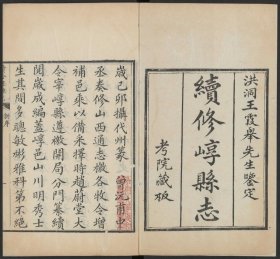 洪洞王霞舉先生鑒定
續修崞縣志
考院藏板
歲己卯攝代州篆 曾沅甫中
丞奉修山西通志檄各牧令增
補邑乘以備采擇時趙蔚堂大
令宰崞縣遵檄開局分門纂續
閱歲成編蓋崞邑山川明秀士
生其間多聰敏彬雅科第不絕